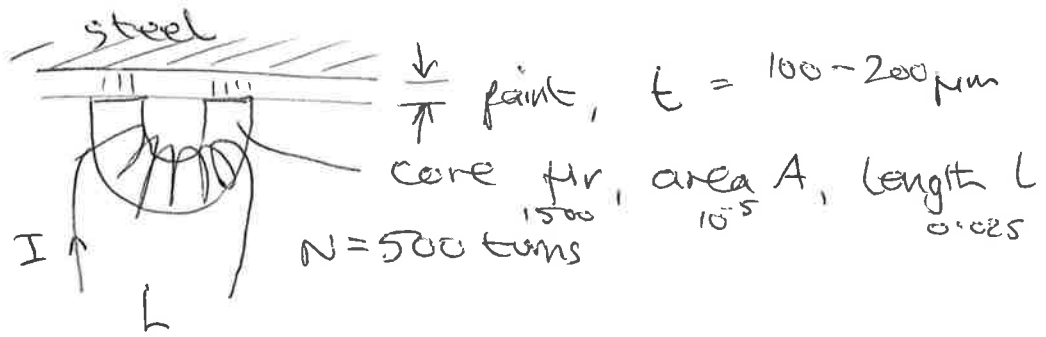 steel
paint, t = 100-200 μm
core μr, area A, length L
1500 10⁻⁵ 0.025
I N = 500 turns
L